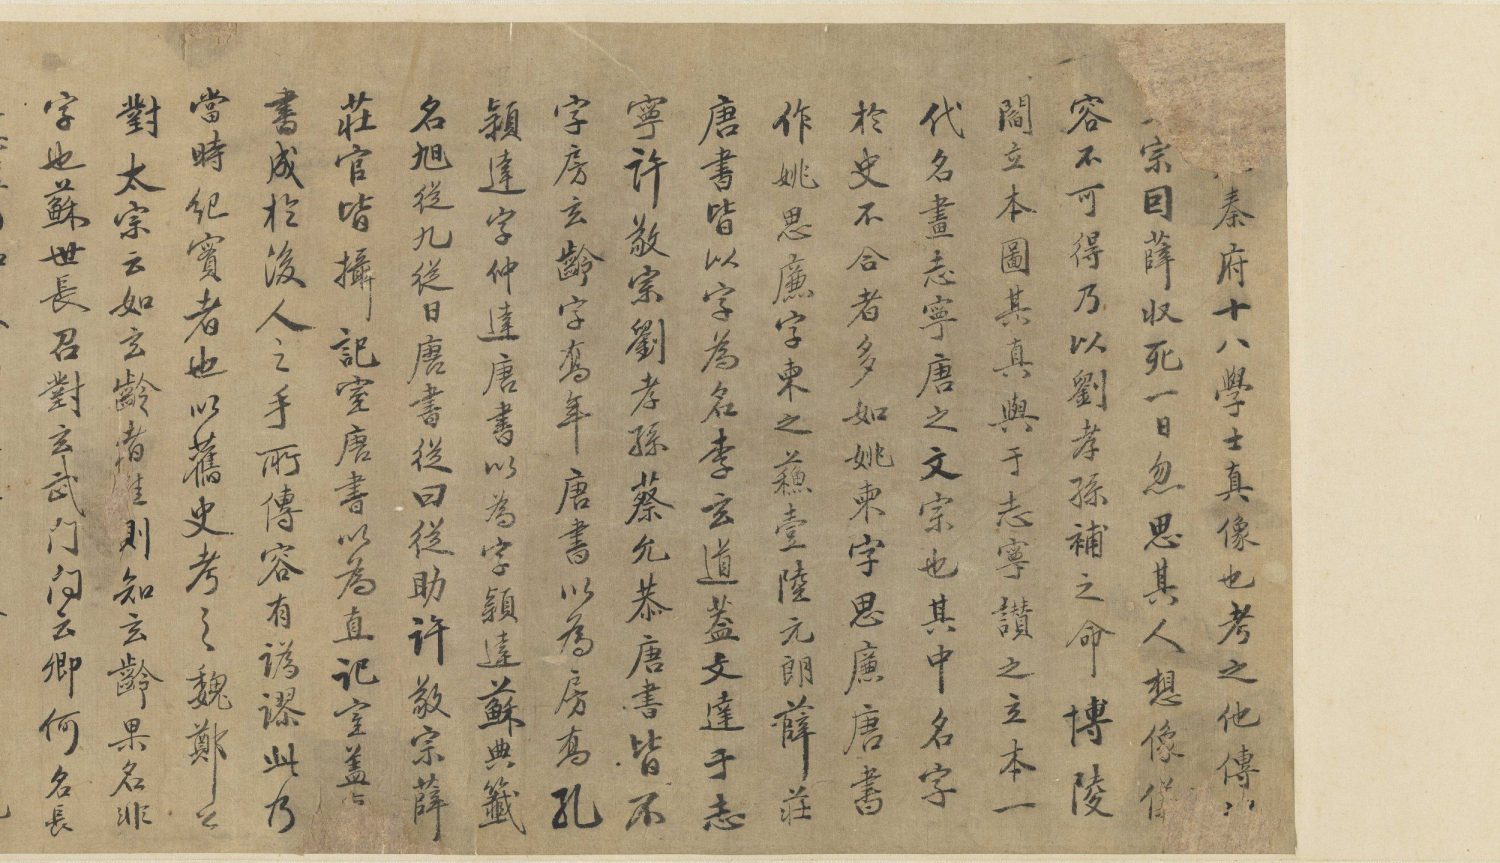 秦府十八學士真像也考之他傳
宗囙薛収死一日忽思其人想像
容不可得乃以劉孝孫補之命博陵
閻立本圖其真與于志寧讃之立本一
代名畫志寧唐之文宗也其中名字
於史不合者多如姚柬字思廉唐書
作姚思廉字柬之蘓壹陸元朗薛莊
唐書皆以字為名李玄道蓋文達于志
寧許敬宗劉孝孫蔡允恭唐書皆不
字房玄齡字喬年唐書以為房喬孔
穎達字仲達唐書以為字穎達蘇典籤
名旭從九從日唐書從曰從助許敬宗薛
莊官皆攝記室唐書以為直記室蓋
書成於後人之手所傳容有譌謬此乃
當時紀實者也以舊史考之魏鄭公
對太宗云如玄齡者惟則知玄齡果名非
字也蘇世長召對玄武門問云卿何名長